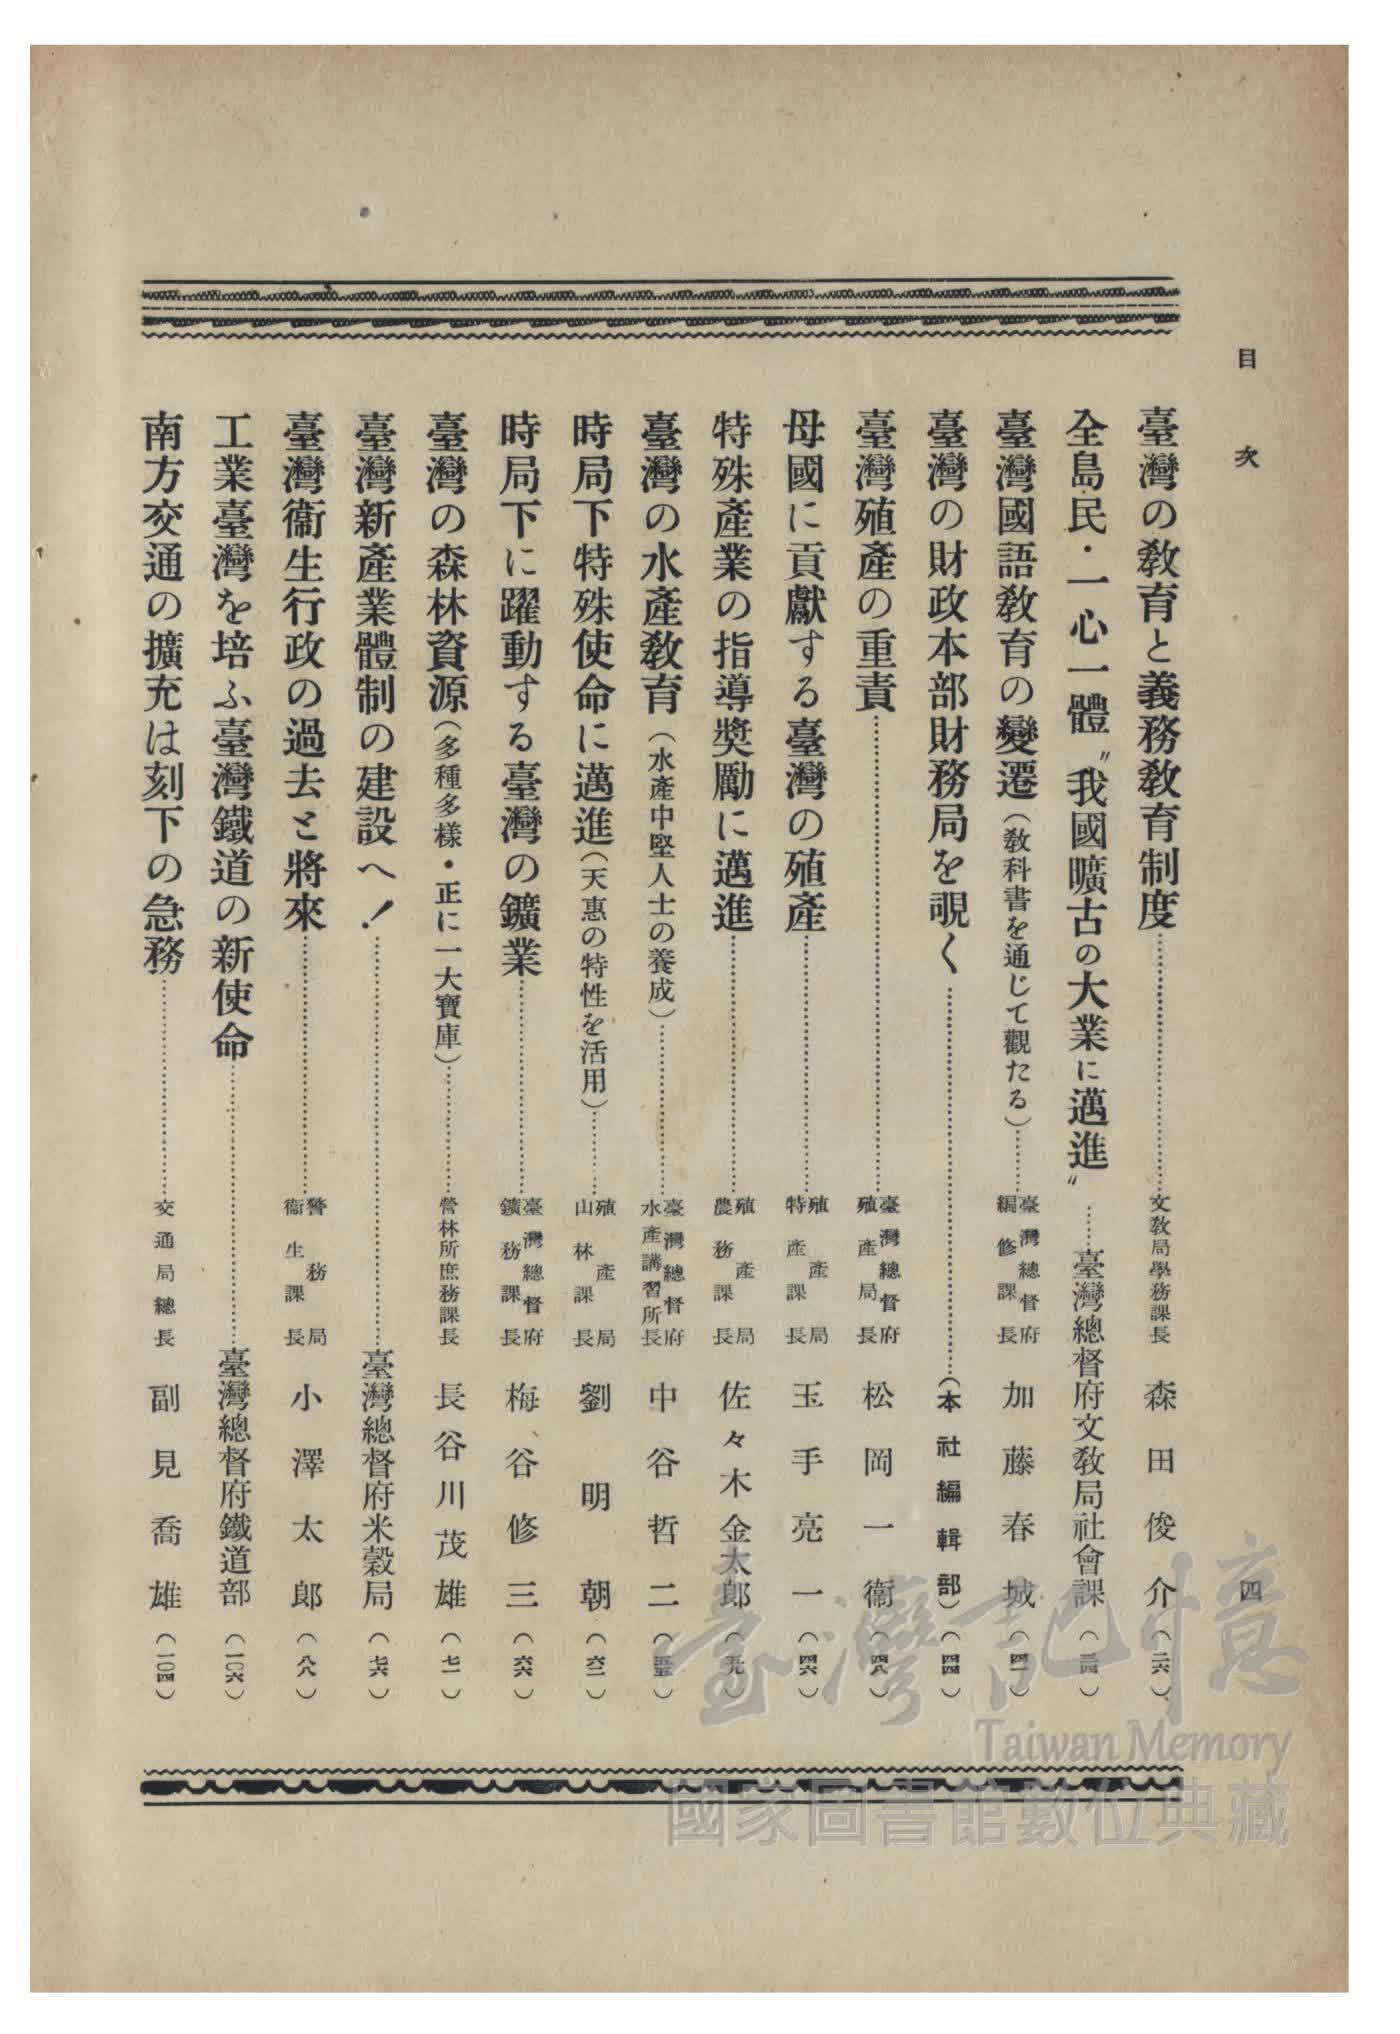 目次
四
臺灣の敎育と義務敎育制度……文敎局學務課長 森田俊介（二六）
全島民・一心一體〝我國曠古の大業に邁進〟……臺灣總督府文敎局社會課
臺灣國語敎育の變遷（敎科書を通じて觀たる）……臺灣總督府編修課長 加藤春城（四一）
臺灣の財政本部財務局を覗く……（本社編輯部）（四四）
臺灣殖產の重責……臺灣總督府殖產局長 松岡一衞（四八）
母國に貢獻する臺灣の殖產……殖產局特產課長 玉手亮一（四六）
特殊產業の指導奬勵に邁進……殖產局農務課長 佐々木金太郎
臺灣の水產敎育（水產中堅人士の養成）……臺灣總督府水產講習所長 中谷哲二
時局下特殊使命に邁進（天惠の特性を活用）……殖產局山林課長 劉明朝（六二）
時局下に躍動する臺灣の鑛業……臺灣總督府鑛務課長 梅谷修三（六六）
臺灣の森林資源（多種多樣・正に一大寶庫）……營林所庶務課長 長谷川茂雄（七一）
臺灣新產業體制の建設へ！……臺灣總督府米穀局（七六）
臺灣衞生行政の過去と將來……警務局衞生課長 小澤太郎（八八）
工業臺灣を培ふ臺灣鐵道の新使命……臺灣總督府鐵道部（一〇六）
南方交通の擴充は刻下の急務……交通局總長 副見喬雄（一〇四）
臺灣記憶
Taiwan Memory
國家圖書館數位典藏